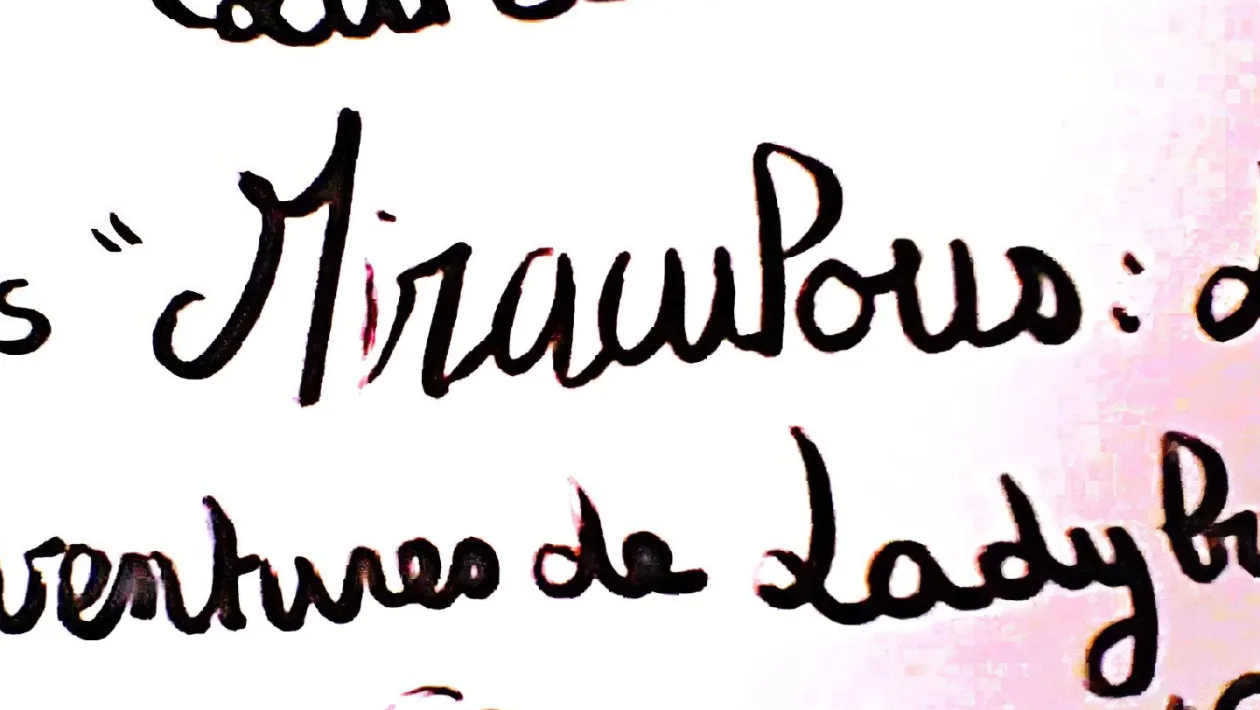 s "Miraculous : 
ventures de Lady